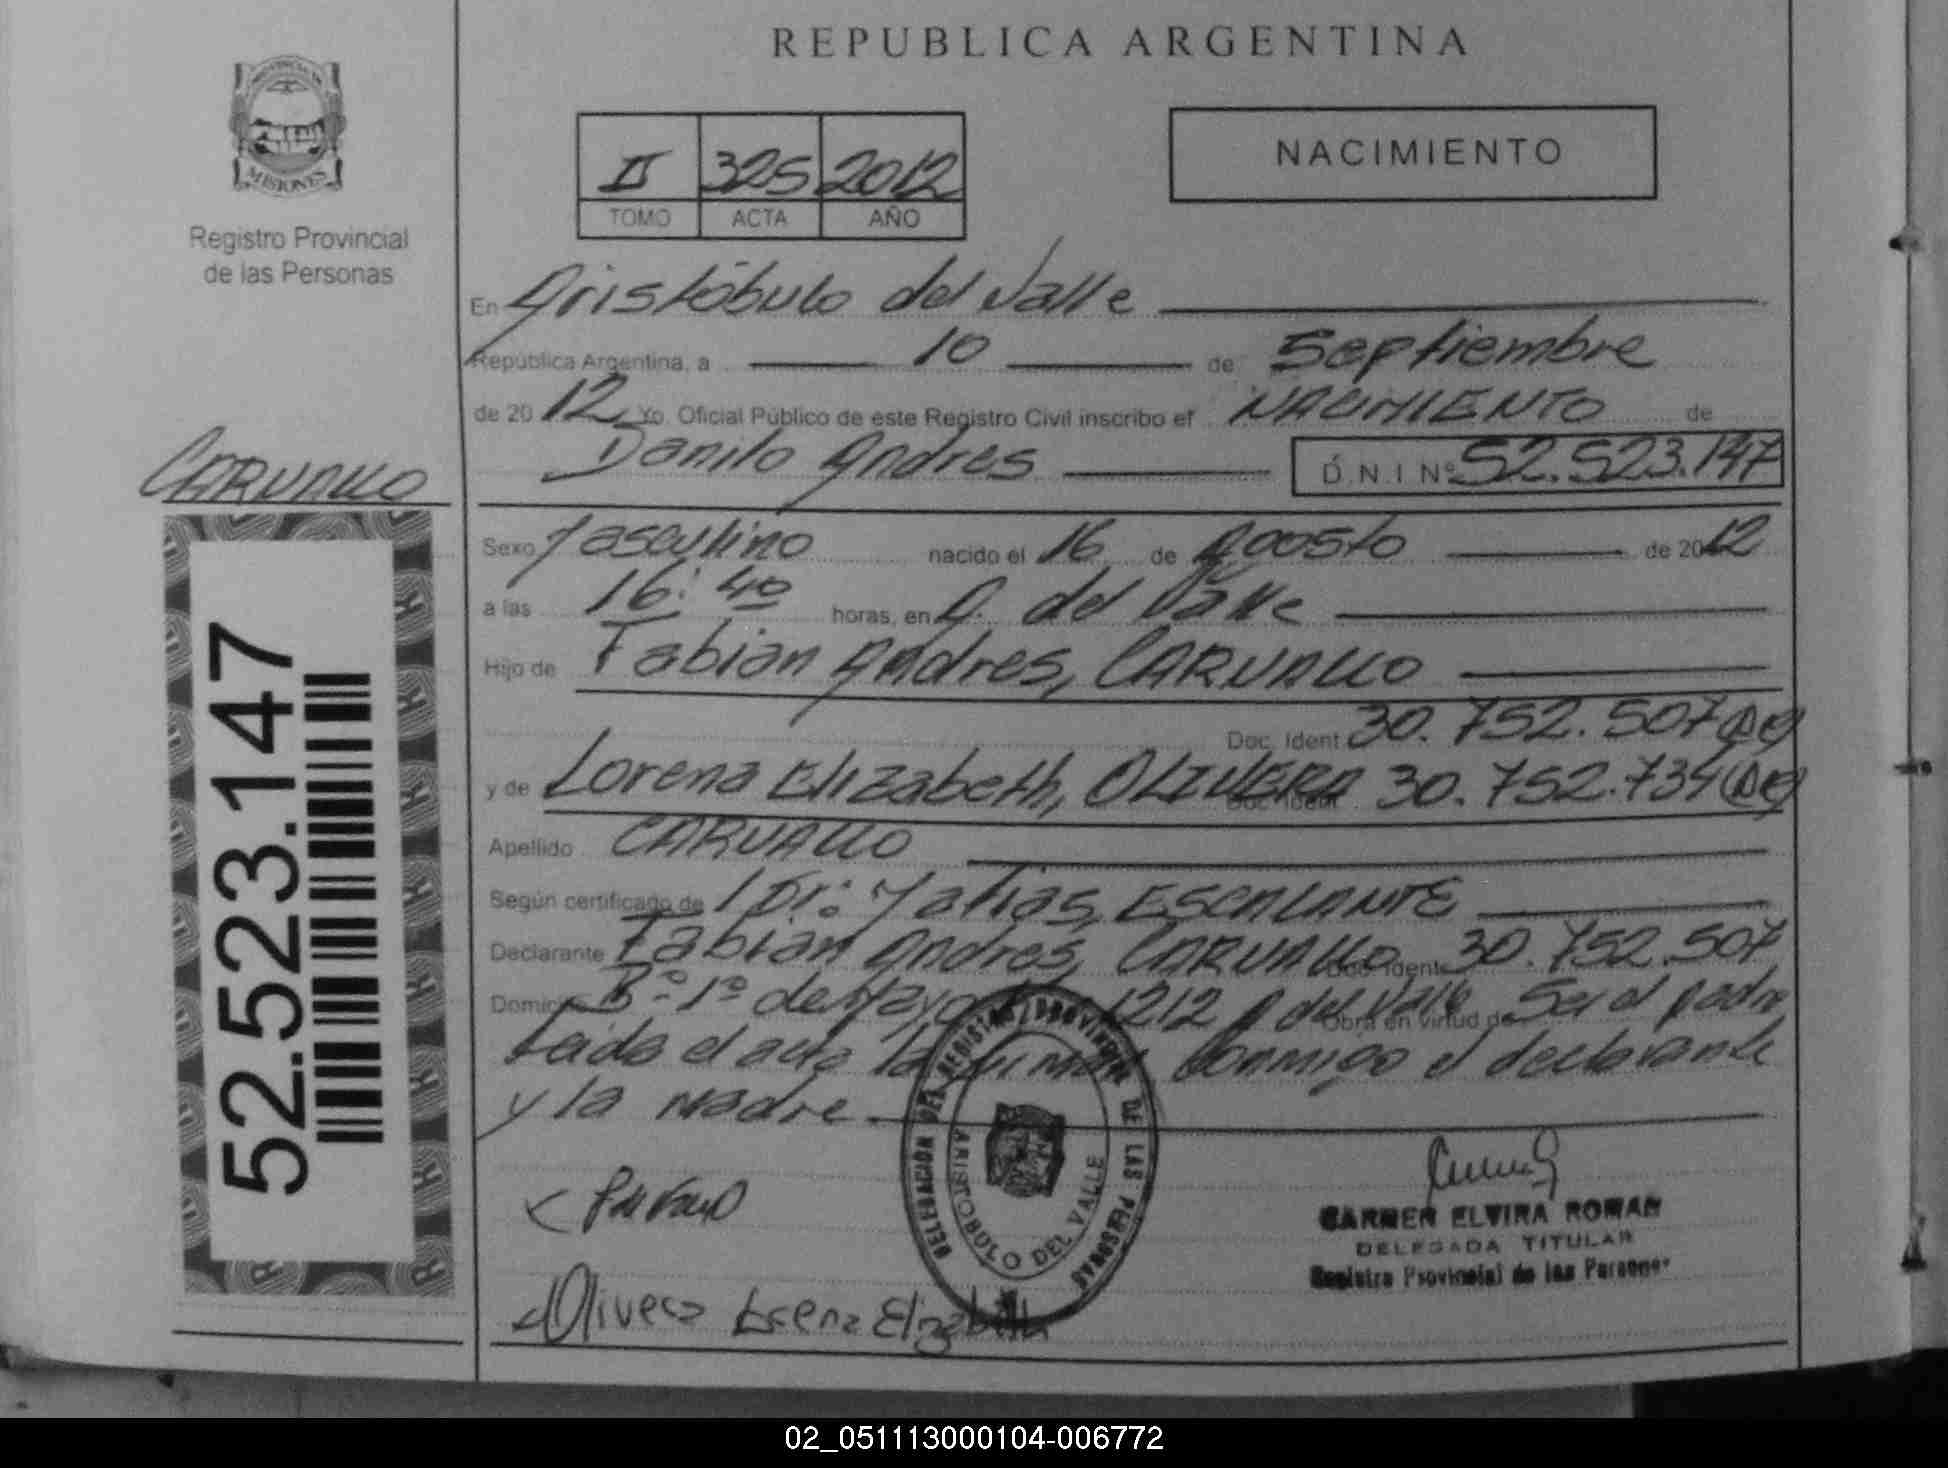 REPUBLICA ARGENTINA
PROVINCIA DE
MISIONES
Registro Provincial
de las Personas
II 325 2012
TOMO ACTA AÑO
NACIMIENTO
En Aristóbulo del Valle
República Argentina, a 10 de Septiembre
de 2012 Yo. Oficial Público de este Registro Civil inscribo el NACIMIENTO de
Danilo Andres D.N.I Nº 52.523.147
CARVALLO
Sexo Masculino nacido el 16 de Agosto de 2012
a las 16:40 horas, en A. del Valle
Hijo de Fabian Andres, CARVALLO
Doc. Ident 30.752.507
y de Lorena Elizabeth, OLIVERA Doc. Ident 30.752.734
Apellido CARVALLO
Según certificado de Dr: Matias, ESCALANTE
Declarante Fabian Andres, CARVALLO Doc. Ident 30.752.507
Domicilio Bº 1º de Mayo 1212 A del Valle Obra en virtud de Ser el padre
Leida el acta la firman conmigo el declarante
y la madre
52.523.147
DELEGACION DEL REGISTRO PROVINCIAL DE LAS PERSONAS
ARISTOBULO DEL VALLE
CARMEN ELVIRA ROMAN
DELEGADA TITULAR
Registro Provincial de las Personas
Olivera Lorena Elizabeth
02_051113000104-006772